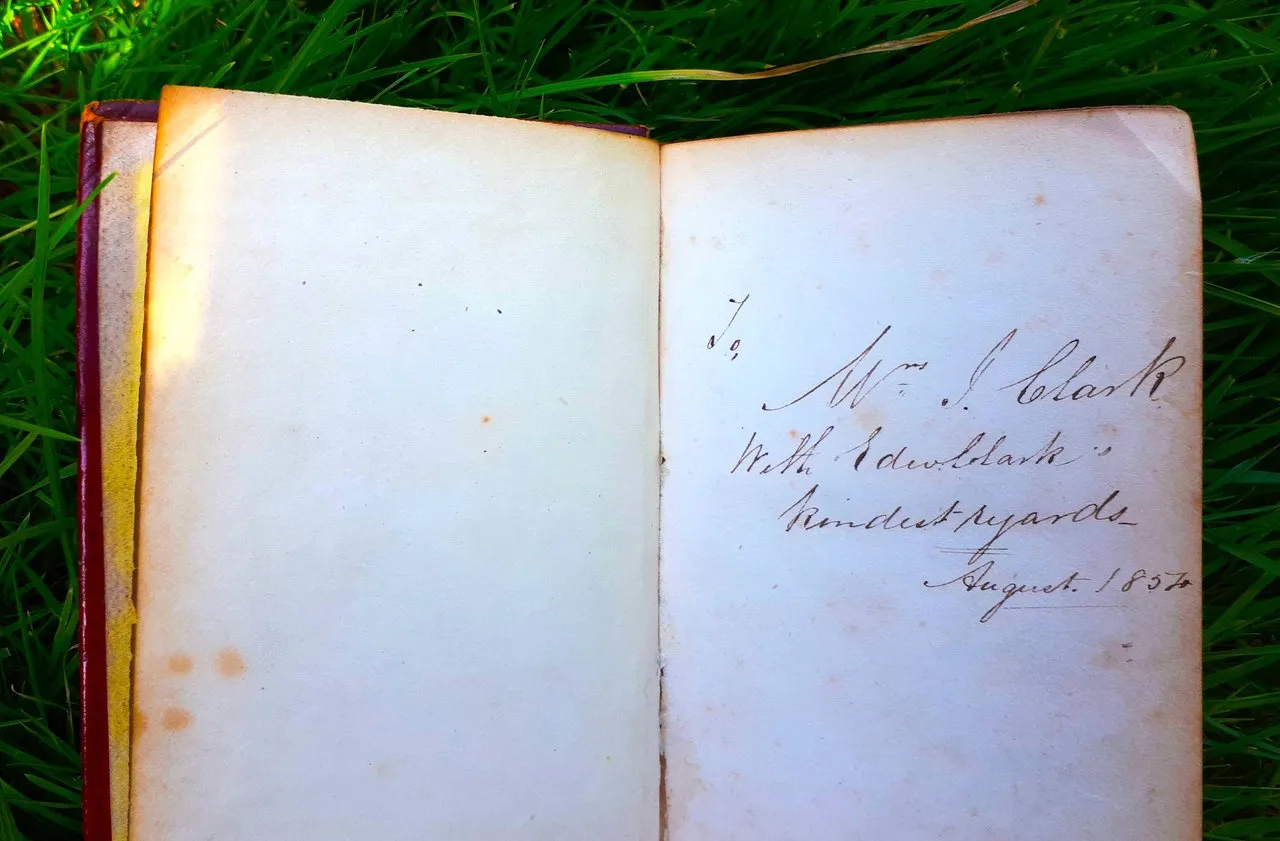 To,
Mrs J. Clark
With Edw Clark's
kindest regards
August. 1854